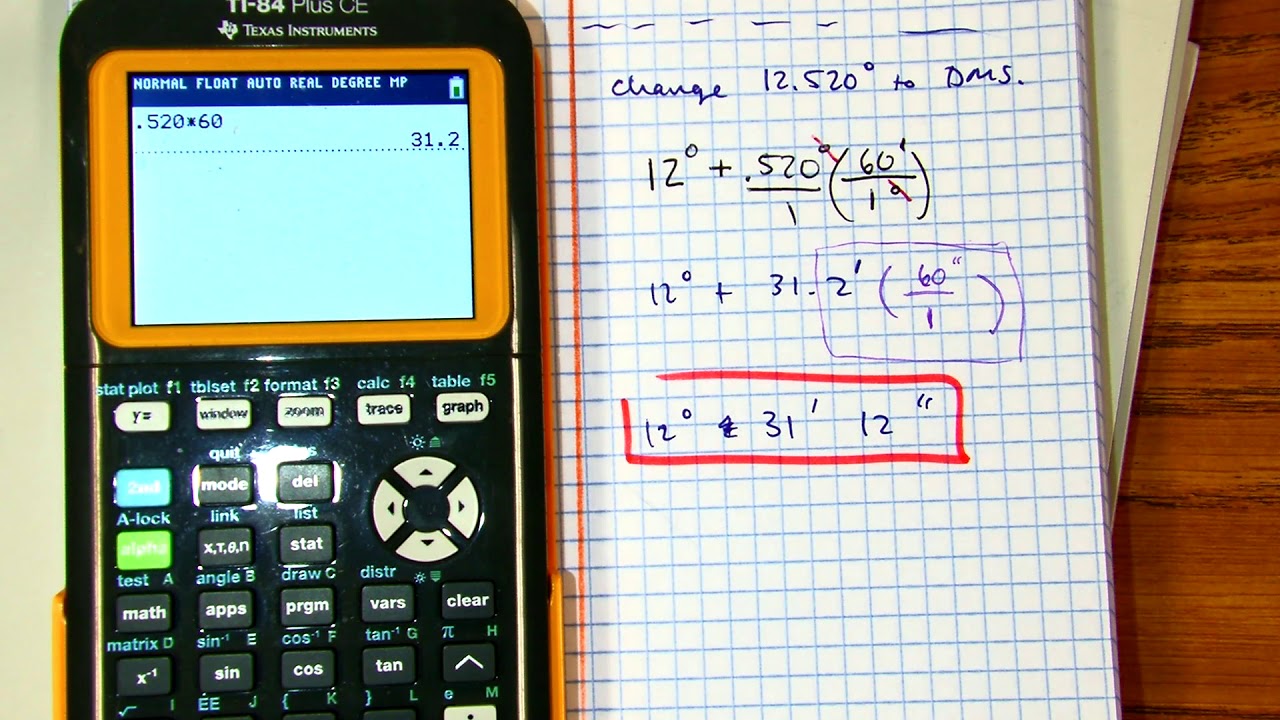 TI-84 Plus CE
TEXAS INSTRUMENTS
NORMAL FLOAT AUTO REAL DEGREE MP
.520*60
31.2
stat plot f1 tblset f2 format f3 calc f4 table f5
y= window zoom trace graph
quit
2nd mode del
A-lock link list
alpha X,T,θ,n stat
test A angle B draw C distr
math apps prgm vars clear
matrix D sin⁻¹ E cos⁻¹ F tan⁻¹ G π H
x⁻¹ sin cos tan ^
√ I EE J { K } L e M
change 12.520° to DMS.
12° + .520°/1 (60'/1°)
12° + 31.2' (60"/1)
12° 31' 12"